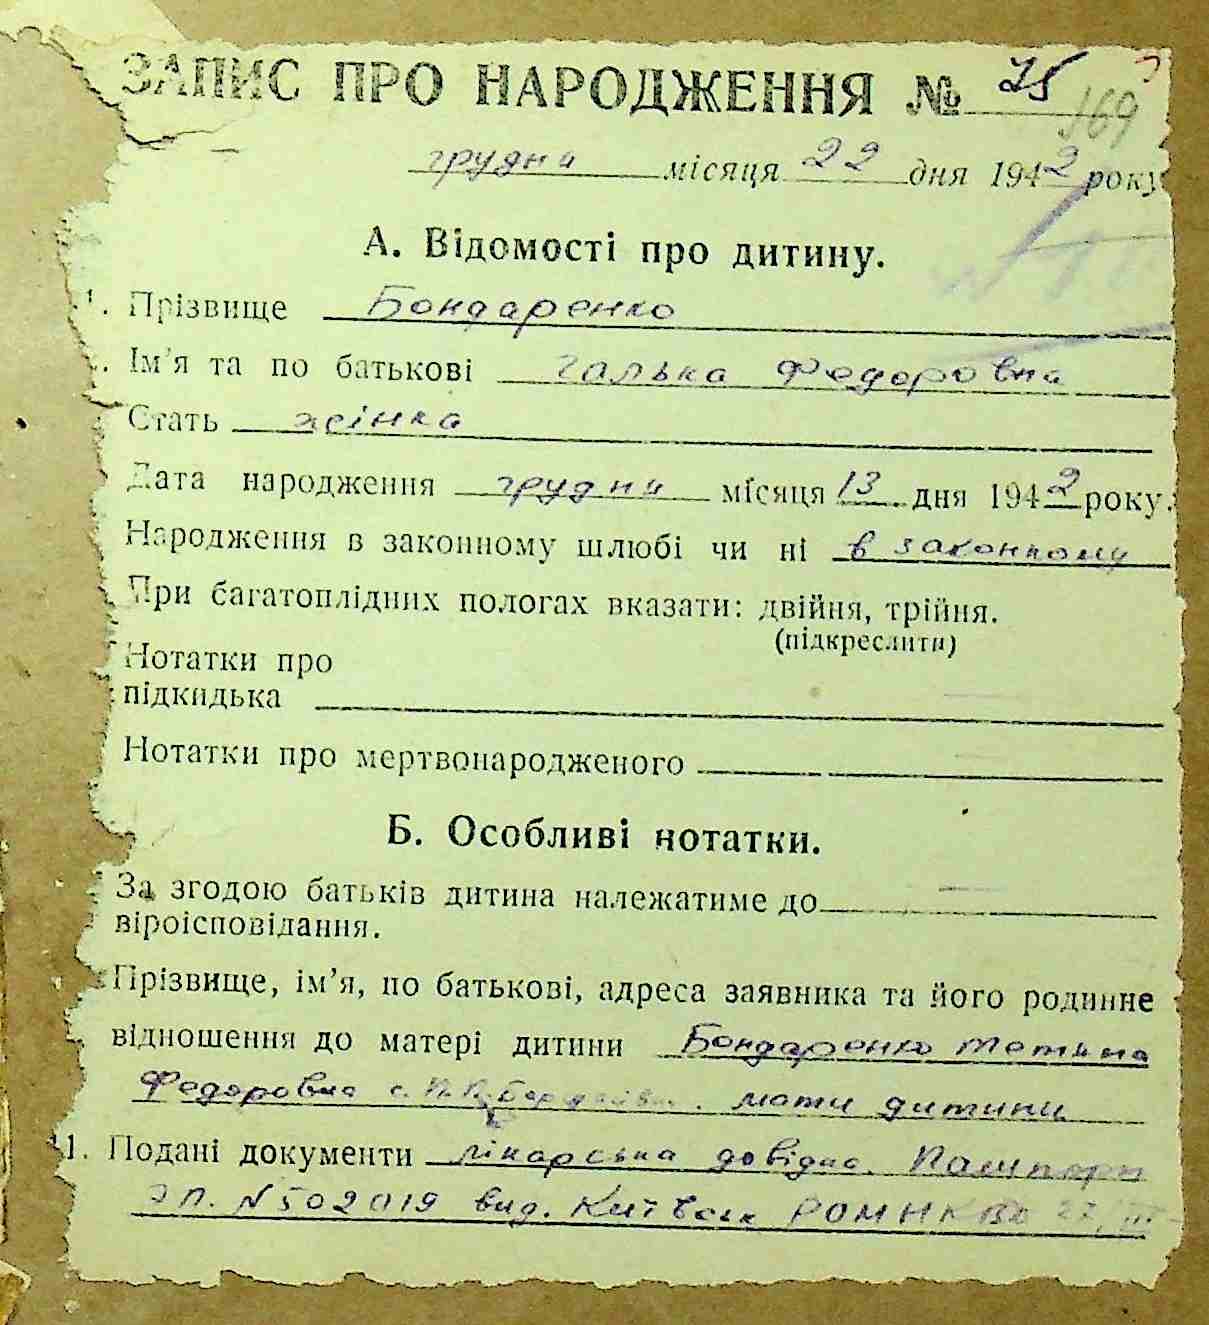 ЗАПИС ПРО НАРОДЖЕННЯ № 75
169
грудня місяця 22 дня 1942 року
А. Відомості про дитину.
1. Прізвище Бондаренко
Ім'я та по батькові Галька Федоровна
Стать жінка
Дата народження грудня місяця 13 дня 1942 року.
Народження в законному шлюбі чи ні в законному
При багатоплідних пологах вказати: двійня, трійня.
(підкреслити)
Нотатки про
підкидька
Нотатки про мертвонародженого
Б. Особливі нотатки.
За згодою батьків дитина належатиме до
віроісповідання.
Прізвище, ім'я, по батькові, адреса заявника та його родинне
відношення до матері дитини Бондаренко Тетяна
Федоровна с. мати дитини
11. Подані документи лікарська довідка. Пашпорт
ЭП. №502019 вид. Київськ РОМНКВД 27/III